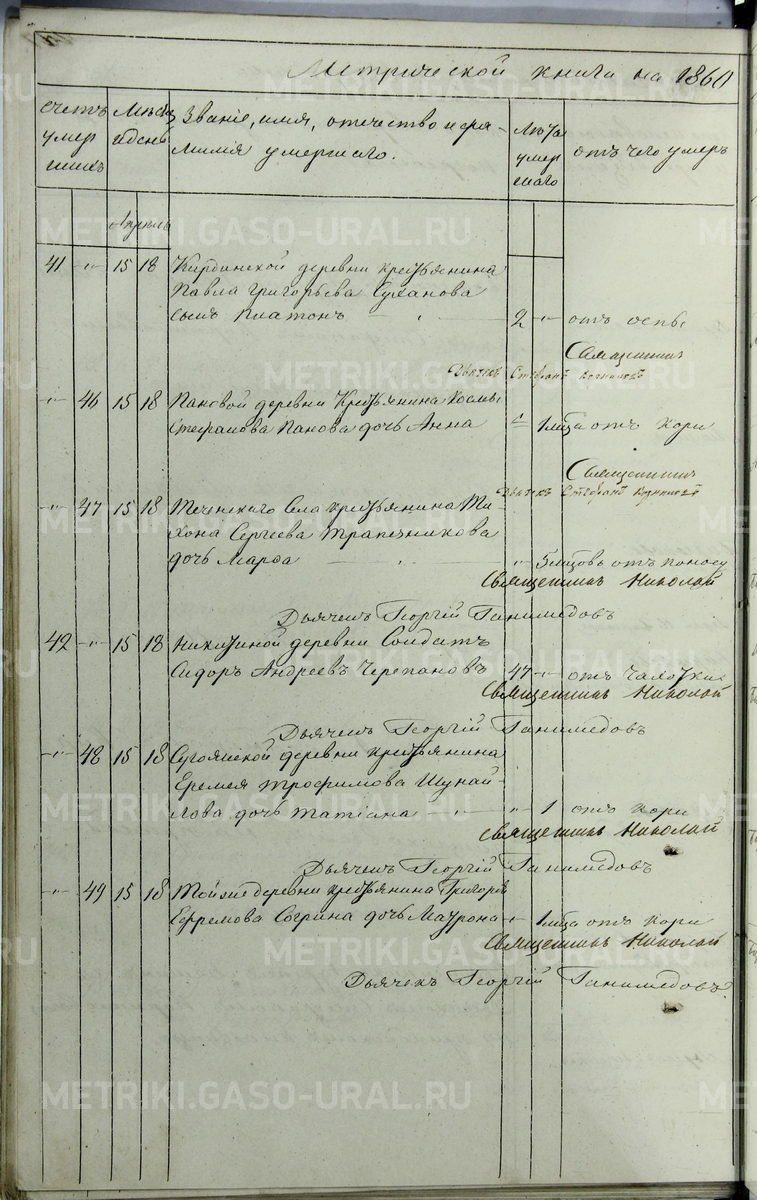 Метрической книги на 1860
Счетъ умершихъ
Мѣсяц и день
Званіе, имя, отечество и фамилія умершаго.
Лѣта умершаго
отъ чего умеръ
Апрѣль
41 -"- 15 18 деревни крестьянина
Павла Григорьева Суханова
сынъ Платонъ - " - 2 -"- отъ оспы
Священникъ
Дьячекъ Стефанъ
-"- 46 15 18 Пановой деревни Крестьянина Космы
Стефанова Панова дочь Анна 1 мѣсца отъ кори
Священникъ
Дьячекъ Стефанъ
-"- 47 15 18 Теченскаго Села крестьянина Ти-
хона Сергеева Трапезникова
дочь Марфа - " 5 мѣсцовъ отъ поносу
Священникъ Николай
Дьячекъ Георгій Ганимедовъ
42 -"- 15 18 Никитиной деревни Солдатъ
Сидоръ Андреевъ Черепановъ 47 -"- отъ чахотки
Священникъ Николай
Дьячекъ Георгій Ганимедовъ
-"- 48 15 18 Сугоякской деревни крестьянина
Еремея Трофимова Шунай-
лова дочь Татіана - " - " 1 отъ кори
Священникъ Николай
Дьячекъ Георгій Ганимедовъ
-"- 49 15 18 Той же деревни крестьянина Григорія
Ефремова Согрина дочь Маѵрона -"- 1 мѣсца отъ кори
Священникъ Николай
Дьячекъ Георгій Ганимедовъ
METRIKI.GASO-URAL.RU